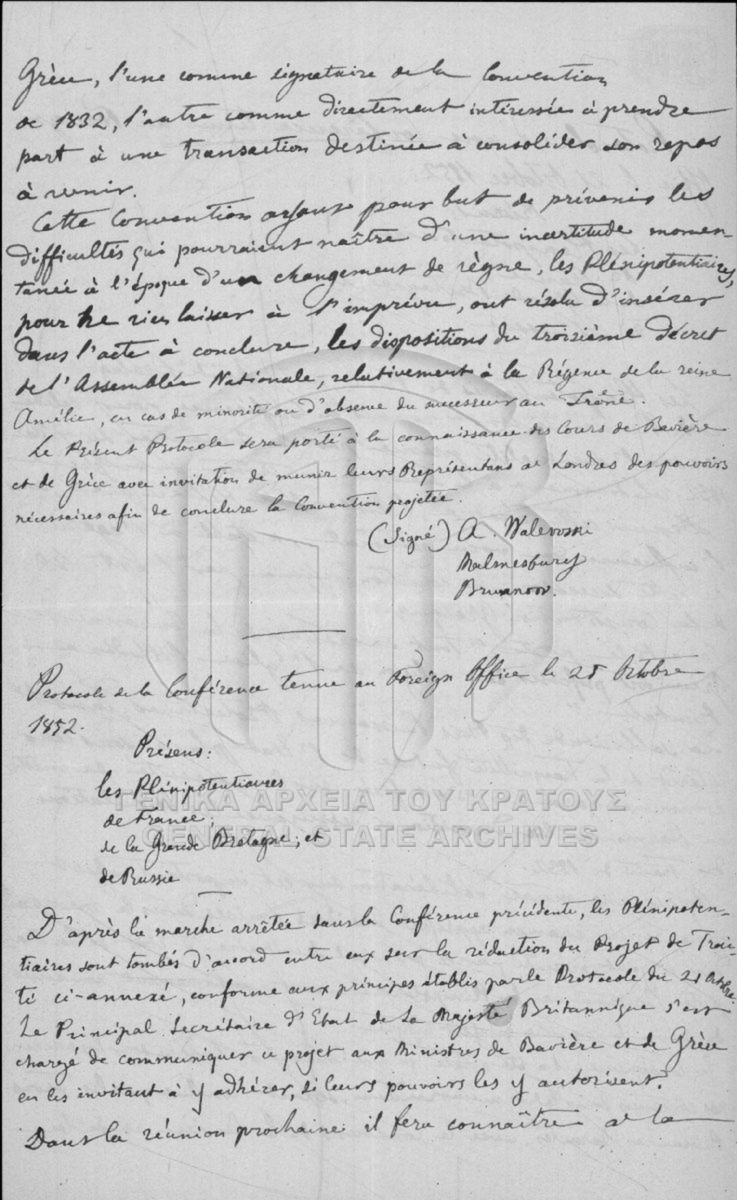 Grèce, l'une comme signataire de la Convention
de 1832, l'autre comme directement intéressée à prendre
part à une transaction destinée à consolider son repos
à venir.
Cette Convention ayant pour but de prévenir les
difficultés qui pourraient naître d'une incertitude momen
tanée à l'époque d'un changement de règne, les Plénipotentiaires,
pour ne rien laisser à l'imprévu, ont résolu d'insérer
dans l'acte à conclure, les dispositions du troisième décret
de l'Assemblée Nationale, relativement à la Régence de la reine
Amélie, en cas de minorité ou d'absence du successeur au Trône.
Le présent Protocole sera porté à la connaissance des Cours de Bavière
et de Grèce avec invitation de munir leurs Représentans à Londres des pouvoirs
nécessaires afin de conclure la Convention projetée.
(Signé) A. Walewski
Malmesbury
Brunnow.
Protocole de la Conférence tenue au Foreign Office le 25 Octobre
1852.
Présens:
les Plénipotentiaires
de France;
de la Grande Bretagne; et
de Russie
ΓΕΝΙΚΑ ΑΡΧΕΙΑ ΤΟΥ ΚΡΑΤΟΥΣ
GENERAL STATE ARCHIVES
D'après la marche arrêtée dans la Conférence précédente, les Plénipoten-
tiaires sont tombés d'accord entre eux sur la rédaction du Projet de Trai-
té ci-annexé, conforme aux principes établis par le Protocole du 21 Octobre.
Le Principal Secrétaire d'Etat de Sa Majesté Britannique s'est
chargé de communiquer ce projet aux Ministres de Bavière et de Grèce
en les invitant à y adhérer, si leurs pouvoirs les y autorisent.
Dans la réunion prochaine il fera connaître à la